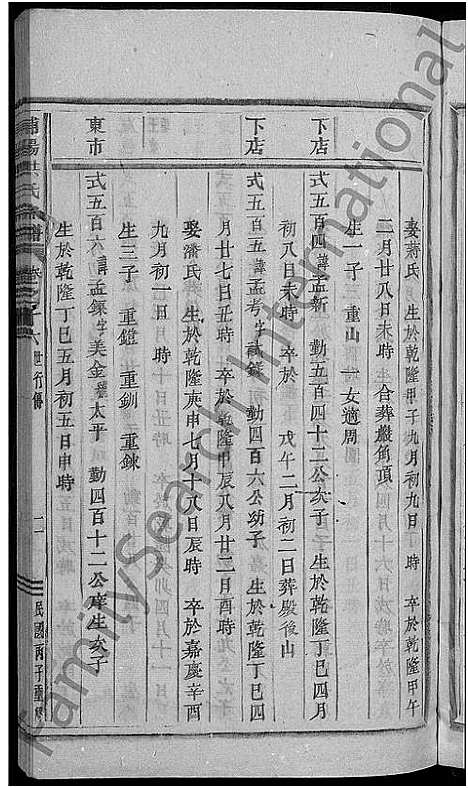 娶蔣氏 生於乾隆甲子九月初九日 時 卒於乾隆甲午
二月廿八日未時 合葬嚴角頂
生一子 重山 一女適周
下店
式五百四 諱孟新 勤五百四十二公次子 生於乾隆丁巳四月
初八日未時 卒於 戊午二月初二日葬殿後山
下店
式五百五 諱孟考 字 勤四百六公幼子 生於乾隆丁巳四
月廿七日丑時 卒於乾隆甲辰八月廿二日酉時
娶潘氏 生於乾隆庚申七月十八日辰時 卒於嘉慶辛酉
九月初一日 時
生三子 重鐙 重釧 重鍊
東市
式五百六 諱孟鏁 字美金 號太平 勤四百十二公庠生次子
生於乾隆丁巳五月初五日申時
浦陽洪氏宗譜 卷之 六世行傳 二 民國丙子重修
FamilySearch International